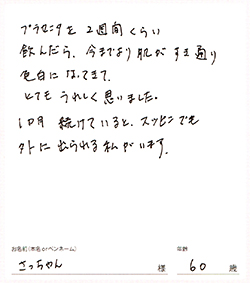 プラセンタを 2週間くらい
飲んだら、今までより肌がすき通り
色白になってきて、
とてもうれしく思いました。
1ヶ月 続けていると、スッピンでも
外に出られる私がいます。
お名前(本名orペンネーム) 年齢
さっちゃん 様 60 歳